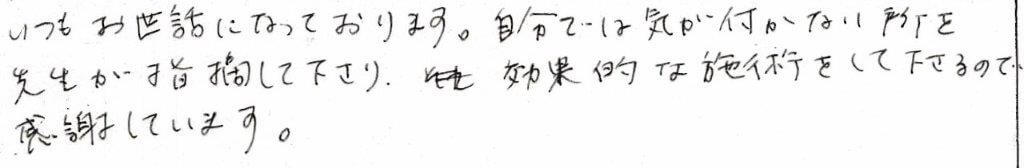 いつもお世話になっております。自分では気が付かない所を
先生が指摘して下さり、効果的な施術をして下さるので、
感謝しています。